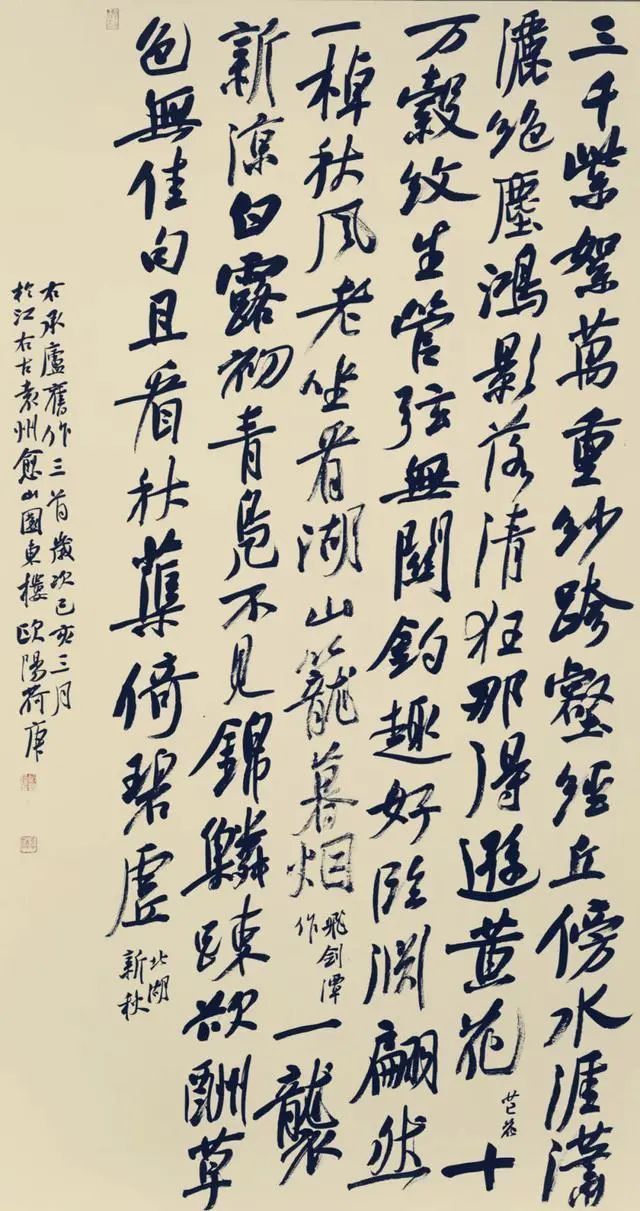 三千紫絮萬重紗跨壑經丘傍水涯瀟
灑絶塵鴻影落清狂那得遜黄花 芒花 十
万縠紋生管弦無關釣趣好臨淵翩然
一棹秋风老坐看湖山籠暮烟 飛劍潭作 一襲
新涼白露初青鳧不見錦鱗疎欲酬草
色無佳句且看秋蕖倚碧虚 北湖新秋
右承廬舊作三首歲次己亥三月
於江右古袁州愈山園東樓歐陽荷庚